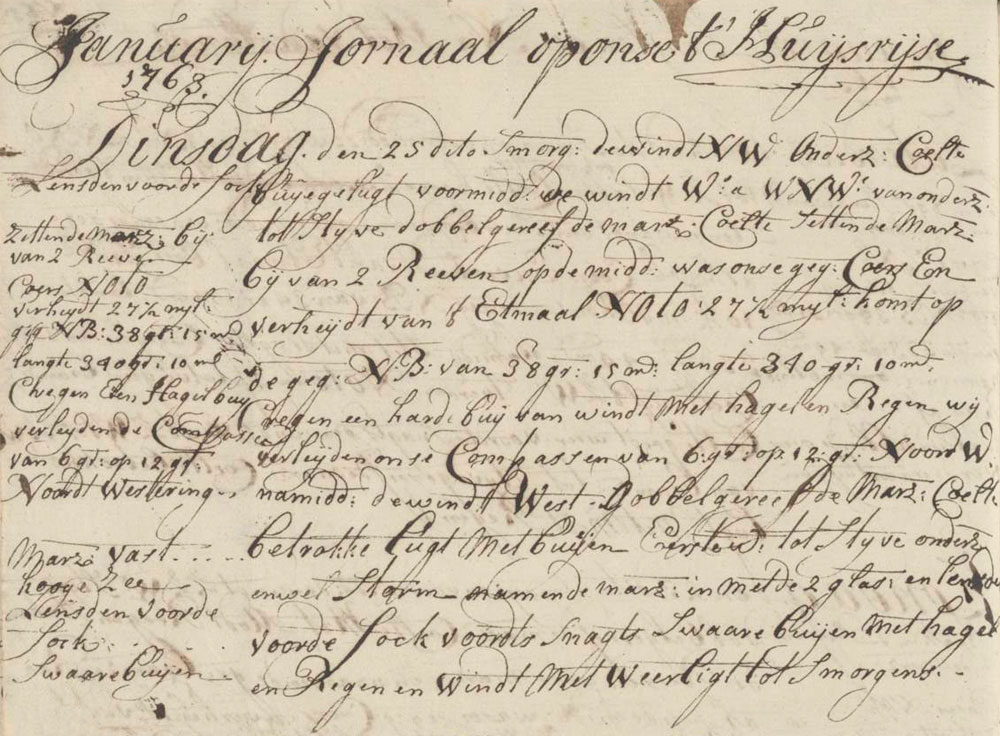 Januarij. Jornaal op onse t' Huijsrijse
1763.
Dinsdag. den 25 dito Smorg: de windt NW Onderz: Coelte
Lensden voorde fock
buyege lugt voormidd: de windt W: a WNW: van onderz:
Zettende Marz: bij
van 2 Reeve
Coers NOtO
verheydt 27½ myl:
geg NB: 38 gr: 15 m:
langte 340 gr: 10 m:
Cregen Een Hagelbuy
verleyden de Compassen
van 6 gr: op 12 gr:
Noordt Westering
Marz: vast
hooge Zee
Lensden voorde
fock:
Swaare buijen
tot Styve dobbelgereefde marz: Coelte Settende Marz:
bij van 2 Reeven op de midd: was onse geg: Coers En
verheydt van 't Etmaal NOtO: 27½ myl: komt op
de geg: NB: van 38 gr: 15 m: langte 340 gr: 10 m:
Cregen een harde buij van windt Met hagel en Regen wij
verleijden onse Compassen van 6: gr: op: 12: gr: Noord W:
namidd: de windt West. Dobbelgereefde Marz: Coelte
betrokke lugt Met buijen Eerstew: tot Styve onderz:
en wel Storm namen de marz: in Met de 2 glas: en
voorde fock voordts Snagts Swaare buijen Met hagel
en Regen en Windt Met Weerligt tot Smorgens.